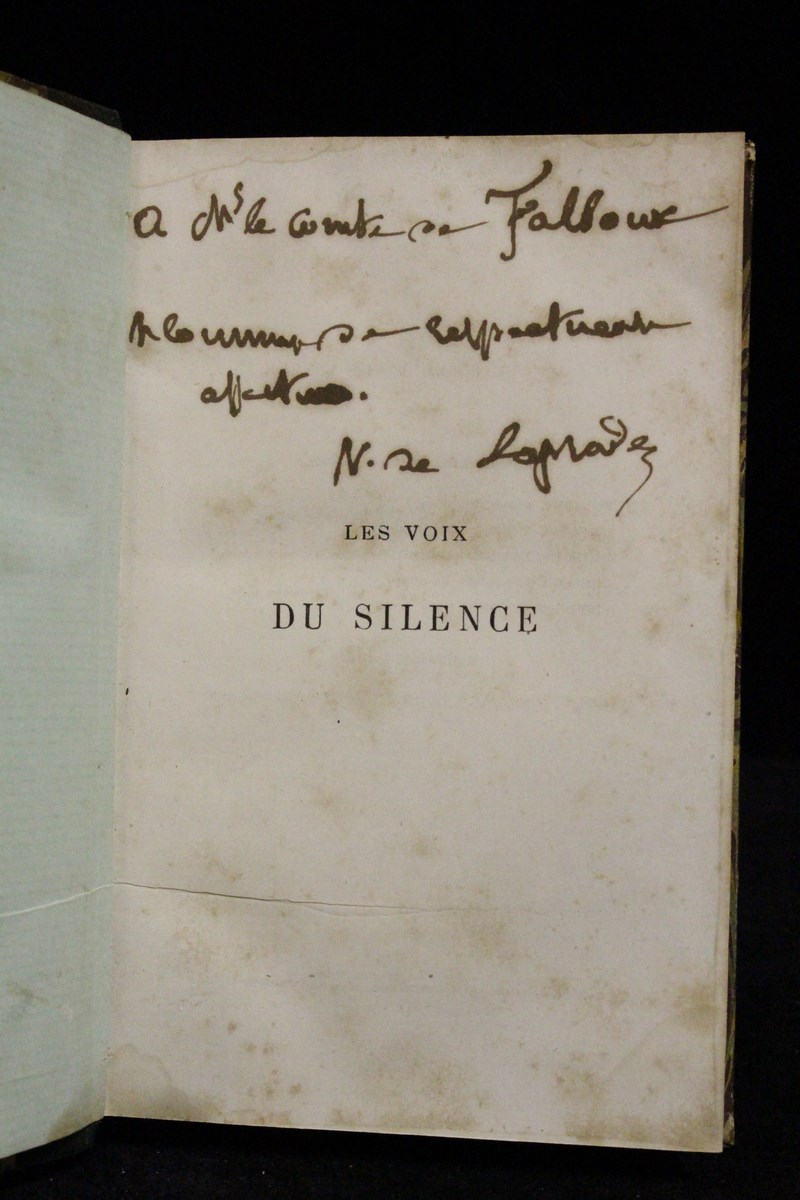 A Mr le comte de Falloux
hommage de respectueux
V. de Laprade
LES VOIX
DU SILENCE